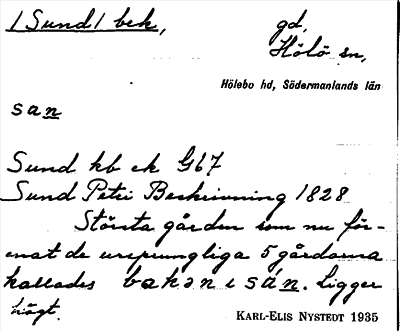 /Sund/ bek,
gd,
Hölö sn,
Hölebo hd, Södermanlands län
san
Sund kb ek G67
Sund Petri Beskrivning 1828
Största gården som nu för-
enat de ursprungliga 5 gårdarna
kallades bakən i sán. Ligger
högt.
KARL-ELIS NYSTEDT 1935